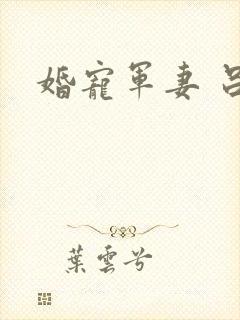 婚寵軍妻
葉雲兮